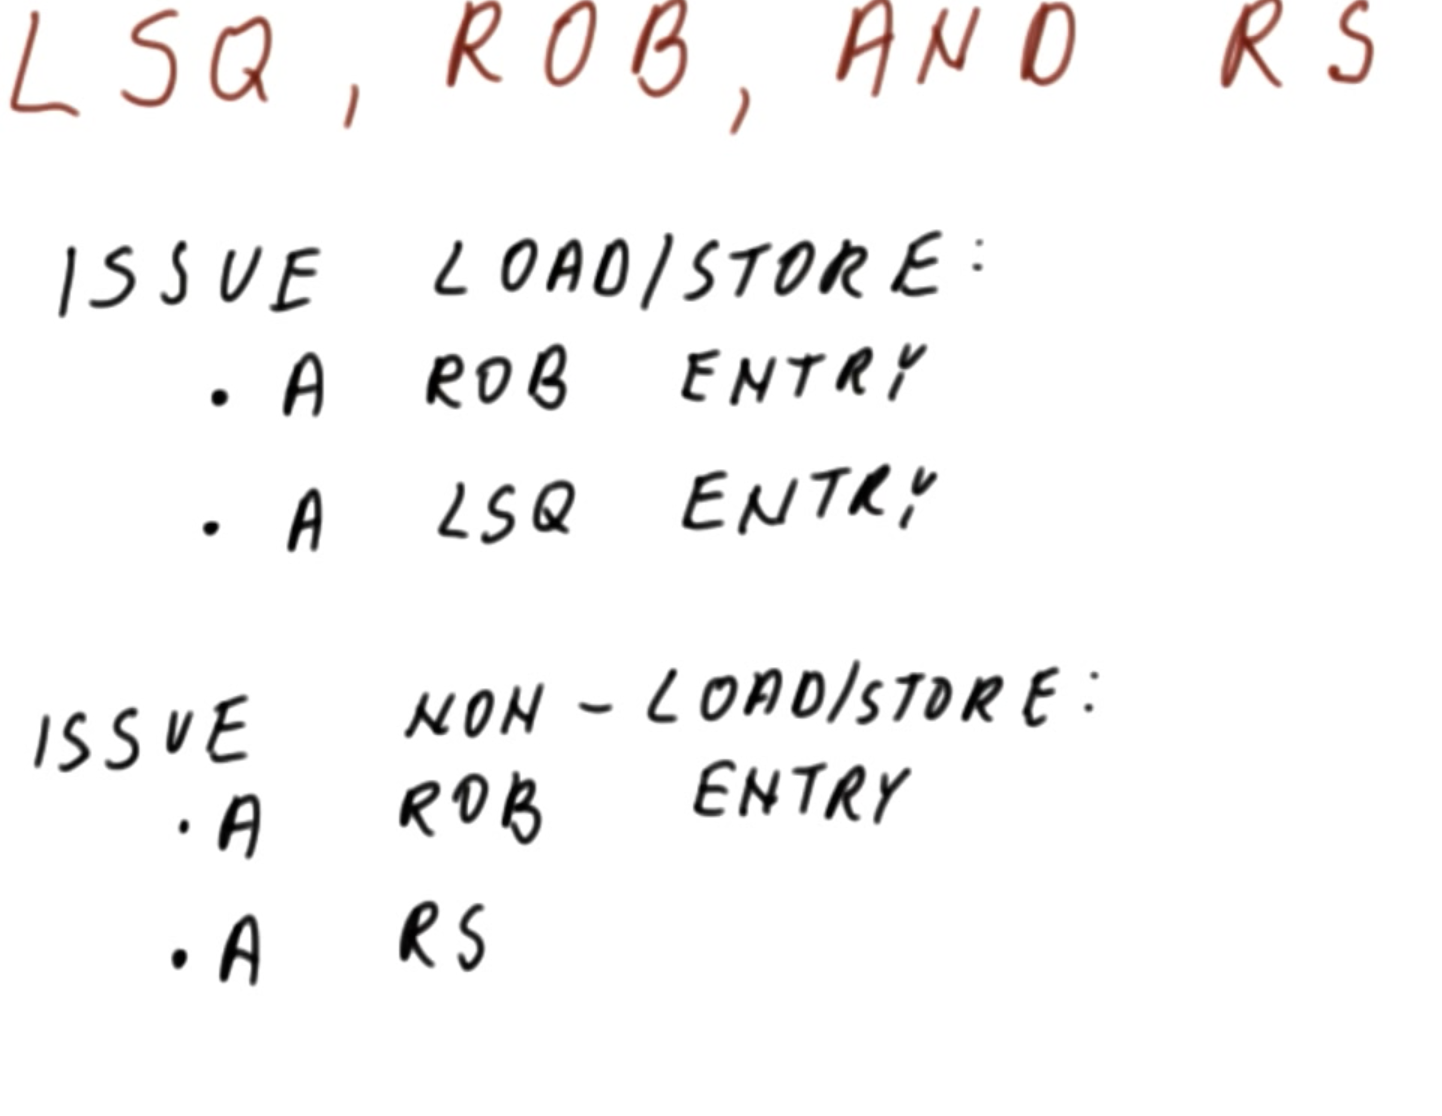 LSQ, ROB, AND RS
ISSUE LOAD/STORE:
• A ROB ENTRY
• A LSQ ENTRY
ISSUE NON-LOAD/STORE:
• A ROB ENTRY
• A RS